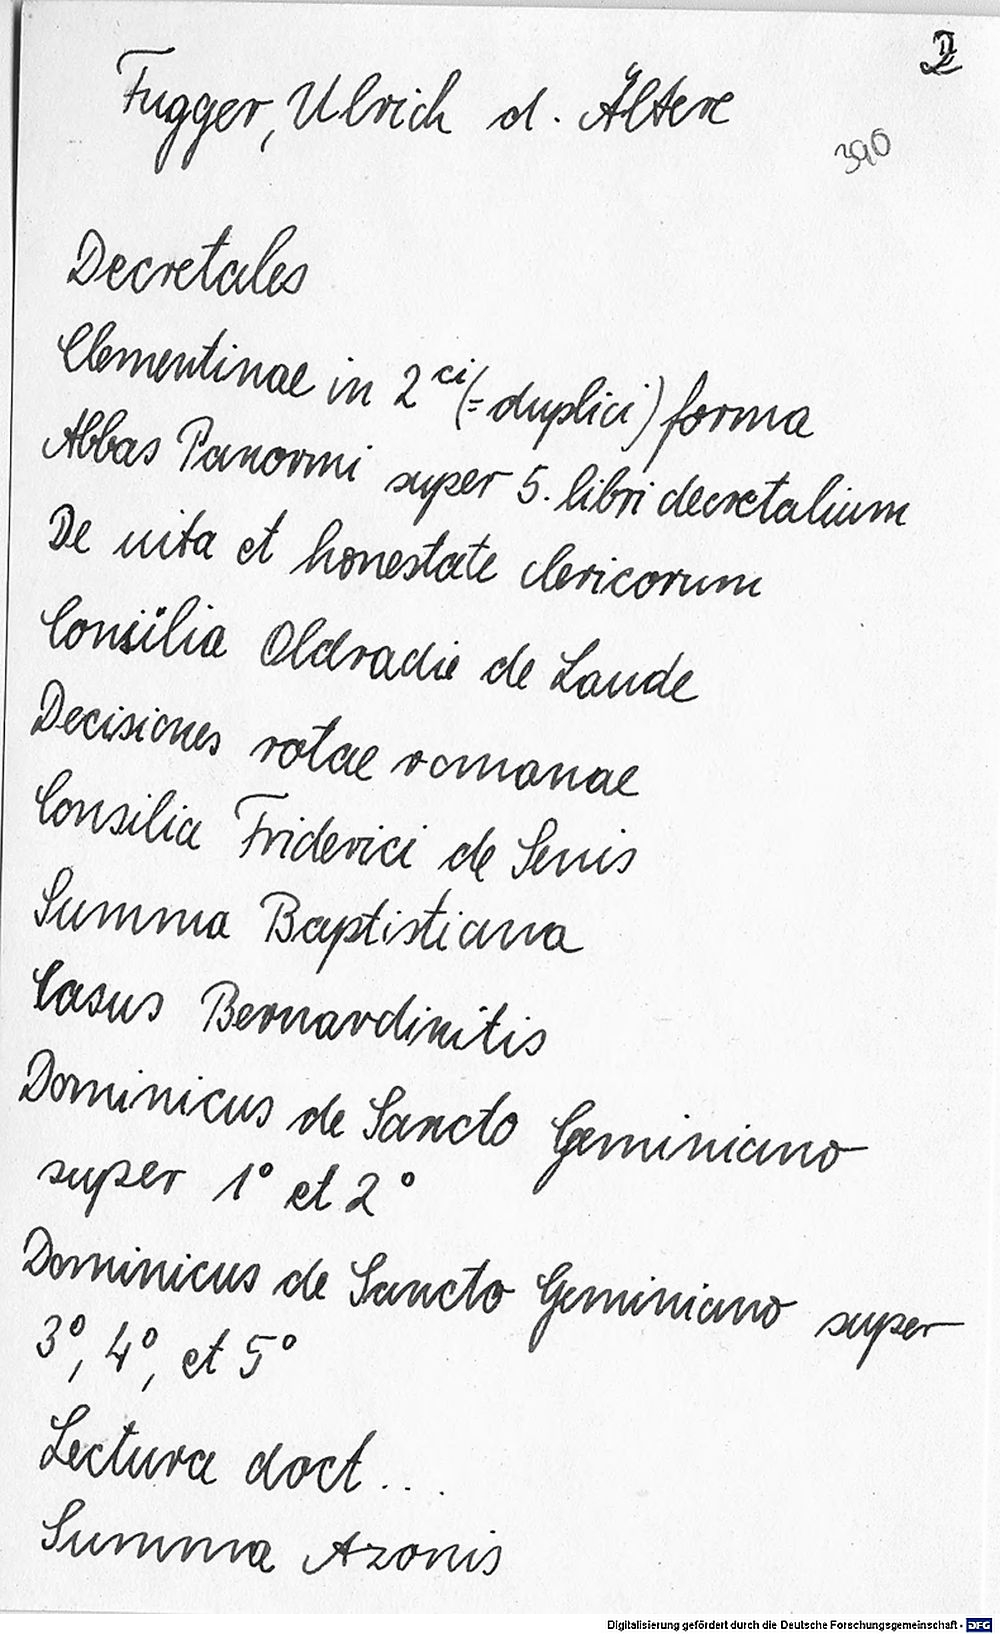 II
Fugger, Ulrich d. Ältere
390
Decretales
Clementinae in 2ci (= duplici) forma
Abbas Panormi super 5. libri decretalium
De uita et honestate clericorum
Consilia Oldradie de Laude
Decisiones rotae romanae
Consilia Friderici de Senis
Summa Baptistiana
Casus Bernardinitis
Dominicus de Sancto Geminiano
super 1° et 2°
Dominicus de Sancto Geminiano super
3°, 4°, et 5°
Lectura doct...
Summa Azonis
Digitalisierung gefördert durch die Deutsche Forschungsgemeinschaft - DFG